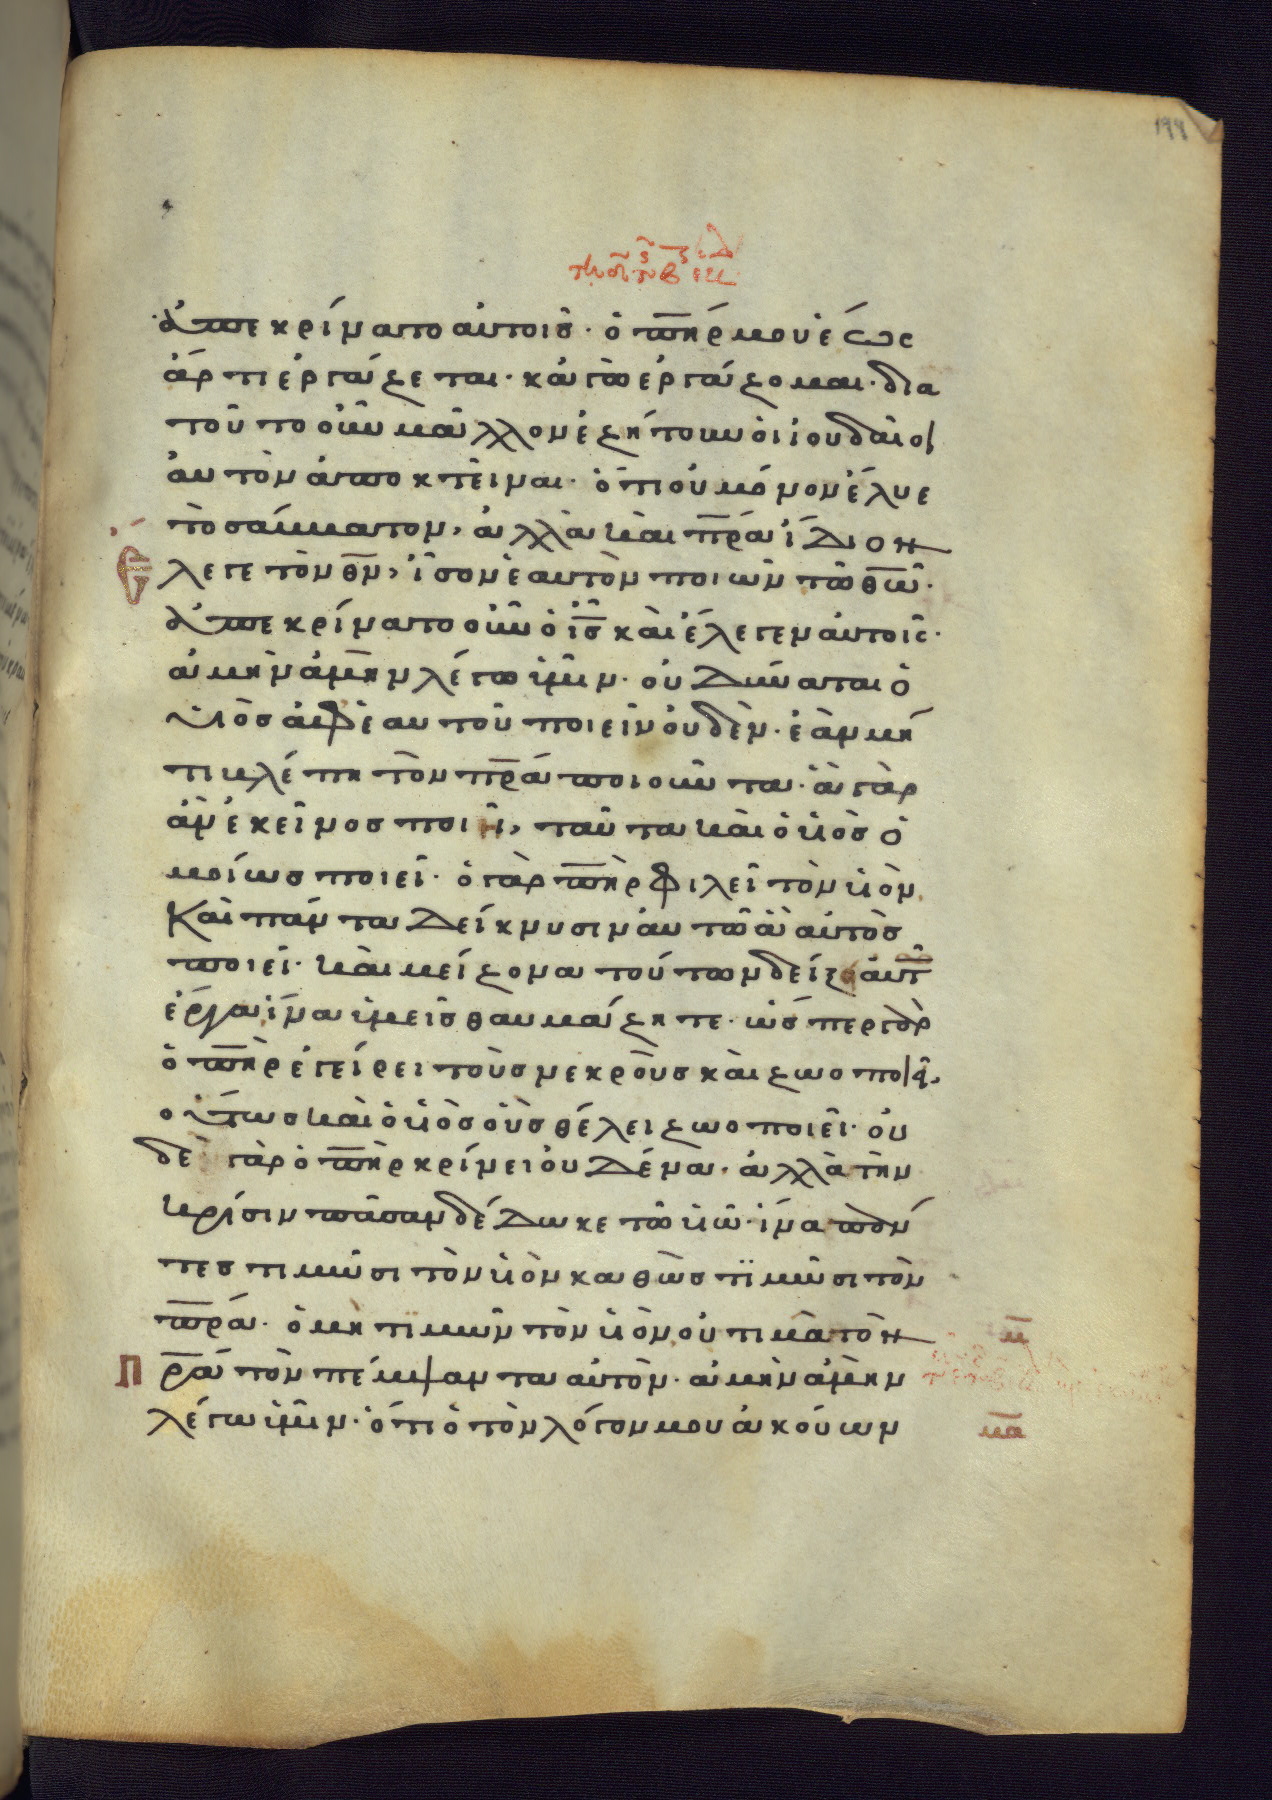 ἀπεκρίνατο αὐτοῖσ· ὁ π̅η̅ρ μου ἕως
ἄρτι ἐργάζεται· κἀγὼ ἐργάζομαι· δια
τοῦτο οὖν μᾶλλον ἐζήτουν ὁι ἰουδαῖοι
αὐτὸν ἀποκτεῖναι· ὅτι οὐ μόνον ἔλυε
τὸ σάββατον, ἀλλὰ καὶ π̅ρ̅α ἴδιον
ἔλεγε τὸν θ̅ν̅, ἴσον ἑαυτὸν ποιῶν τῶ θ̅ω̅·
ἀπεκρίνατο οὖν ὁ ι̅σ̅ καὶ ἔλεγεν αὐτοῖς·
ἀμὴν ἀμὴν λέγω ὑμῖν· οὐ δύναται ὁ
υἱὸσ ἀφ᾽ ἑαυτοῦ ποιεῖν οὐδὲν· ἐὰν μή
τι βλέπη τὸν π̅ρ̅α ποιοῦντα· ἃ γὰρ
ἂν ἐκεῖνοσ ποιῆ, ταῦτα καὶ ὁ υἱὸσ ὁ
μοίωσ ποιεῖ· ὁ γὰρ π̅η̅ρ φιλεῖ τὸν υἱὸν
καὶ πάντα δείκνυσιν αὐτῶ ἃ αὐτὸσ
ποιεῖ· καὶ μείζονα τούτων δείξει αὐτ
ἔργα, ἵνα ὑμεῖσ θαυμάζητε· ὥσπερ γὰρ
ὁ π̅η̅ρ ἐγείρει τοὺσ νεκροὺσ καὶ ζωοποιεῖ,
οὕτωσ καὶ ὁ υἱὸσ οὓσ θέλει ζωοποιεῖ· οὐ
δὲ γὰρ ὁ π̅η̅ρ κρίνει οὐδένα· ἀλλὰ τὴν
κρίσιν πᾶσαν δέδωκε τῶ υἱῶ· ἵνα πάν
τεσ τιμῶσι τὸν υἱὸν καθὼσ τιμῶσι τὸν
π̅ρ̅α· ὁ μὴ τιμῶν τὸν υἱὸν οὐ τιμᾶ τὸν
π̅ρ̅α τὸν πέμψαντα αὐτὸν· ἀμὴν ἀμὴν
λέγω ὑμῖν· ὅτι ὁ τὸν λόγον μου ἀκούων
μ̅α̅